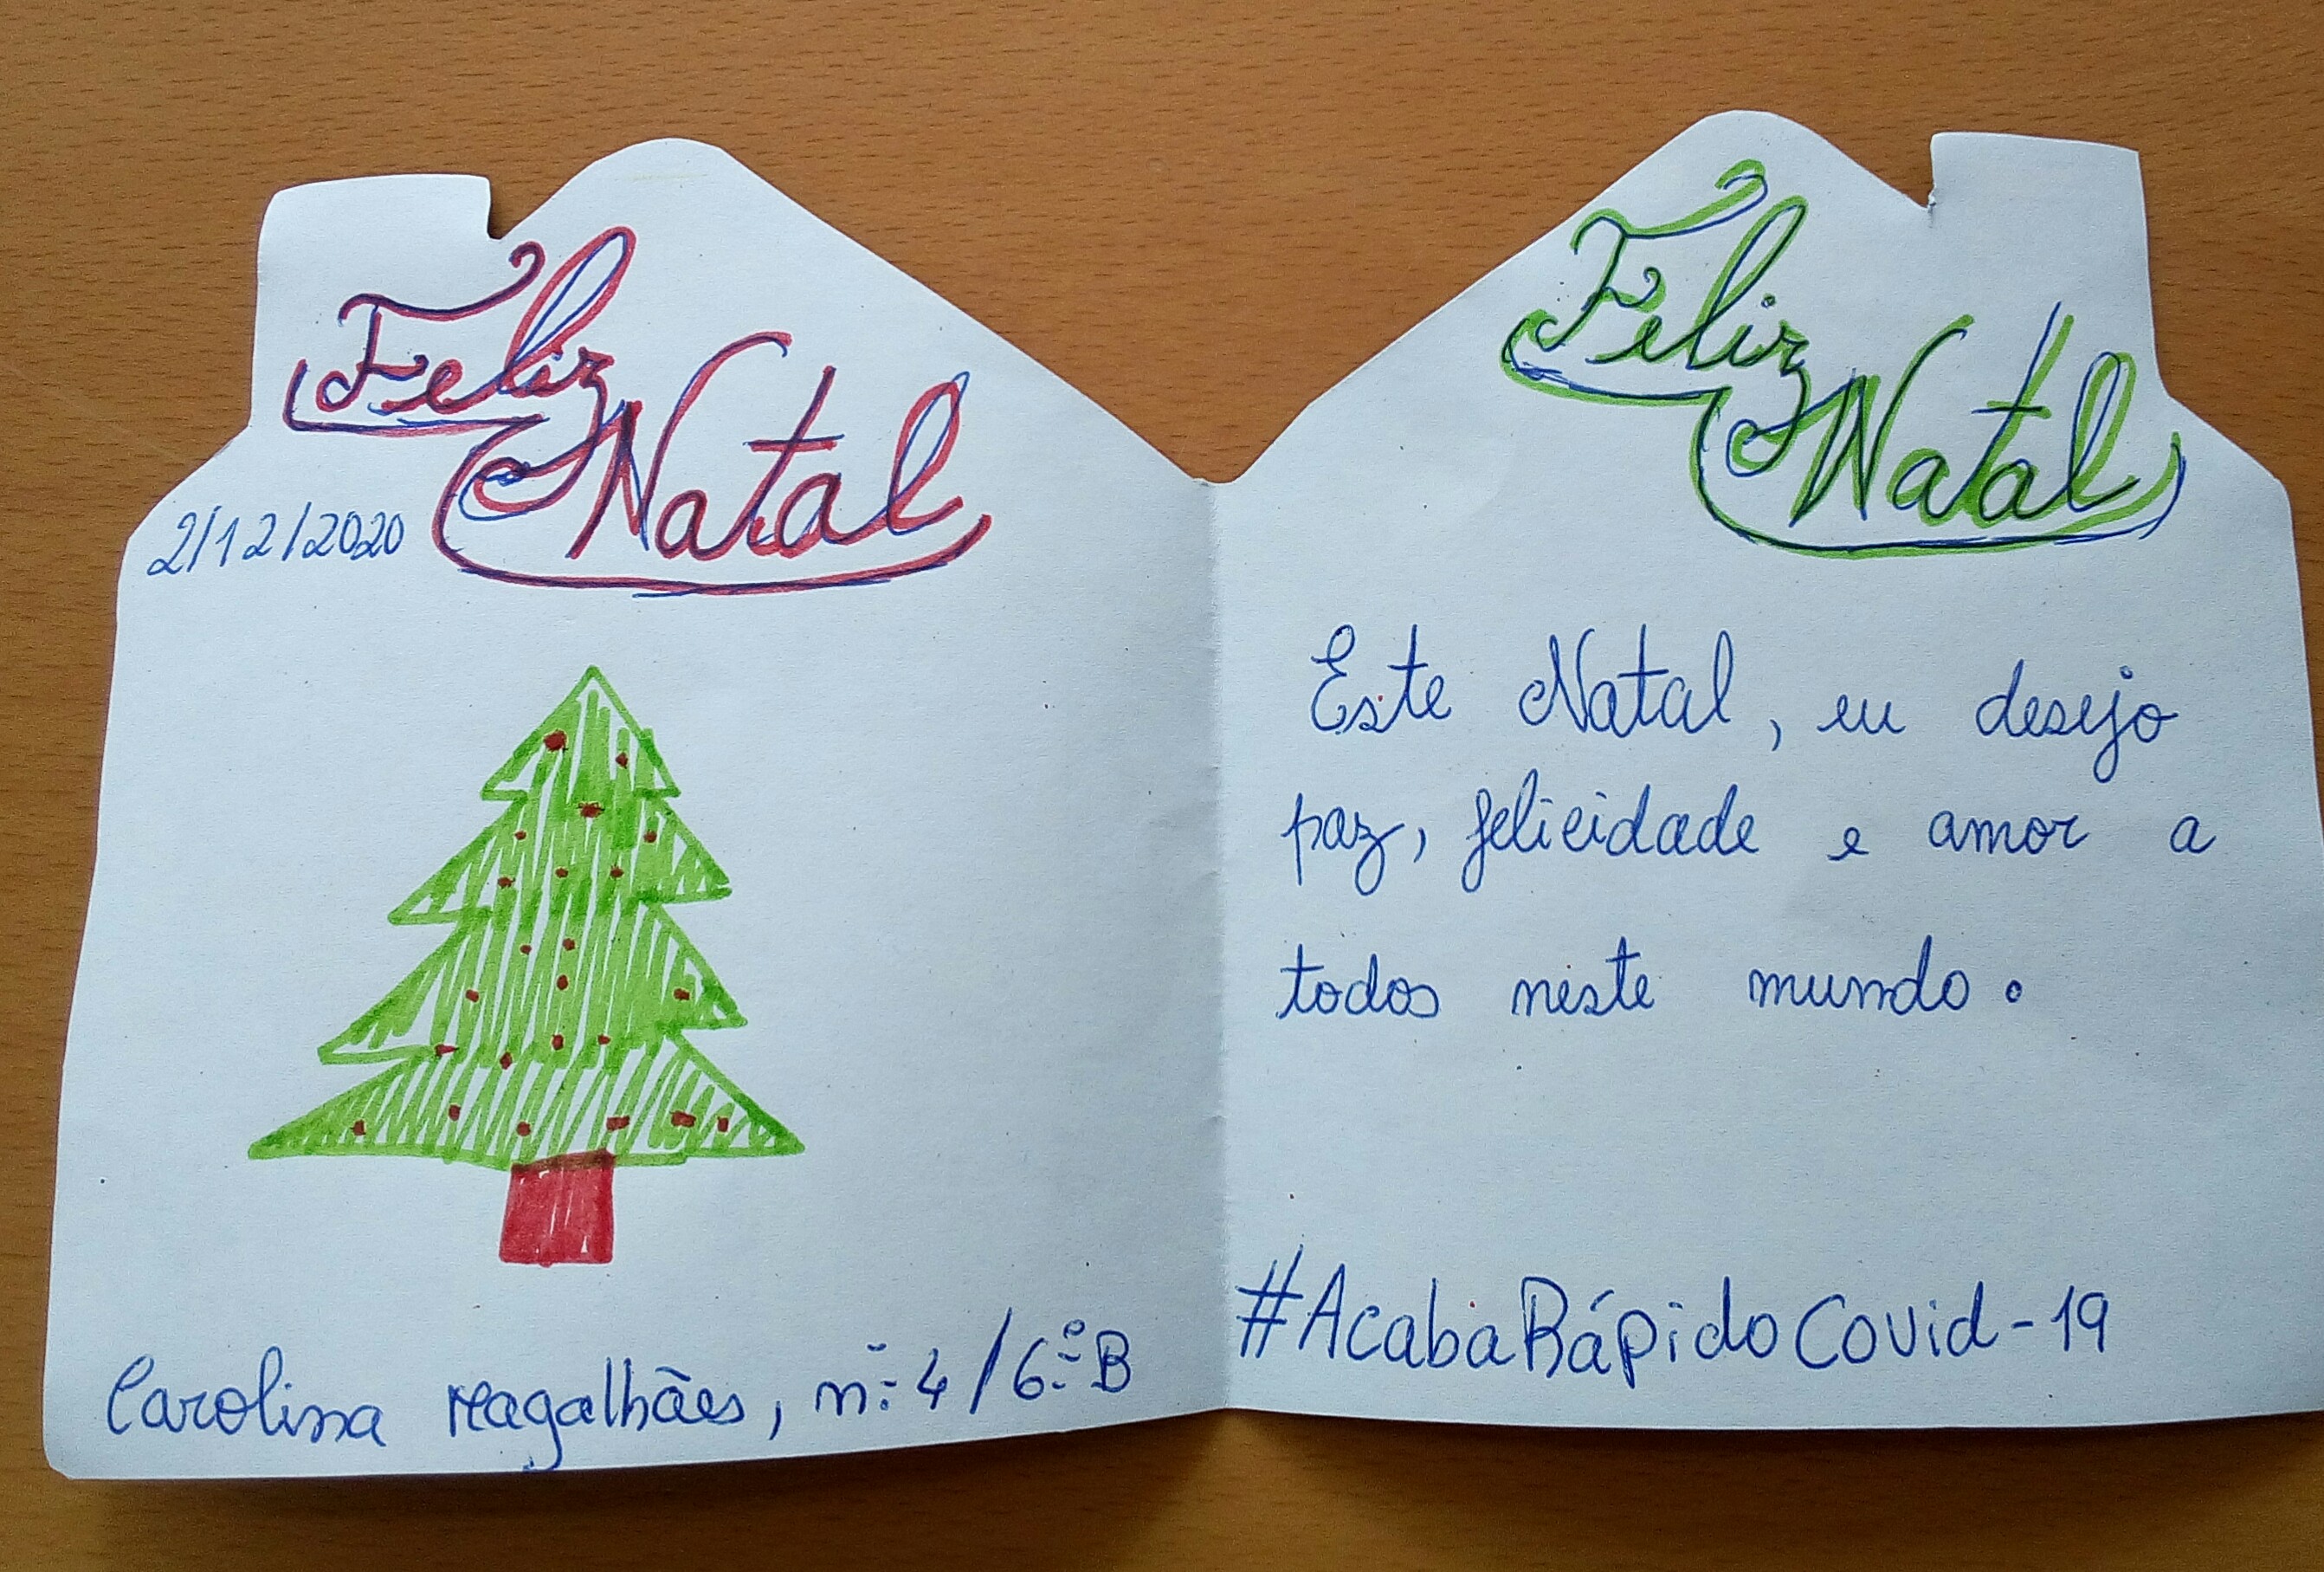 Feliz
Natal
2/12/2020
Carolina Magalhães, n.º 4 / 6.º B
Feliz
Natal
Este Natal, eu desejo
paz, felicidade e amor a
todos neste mundo.
#AcabaRápidoCovid-19